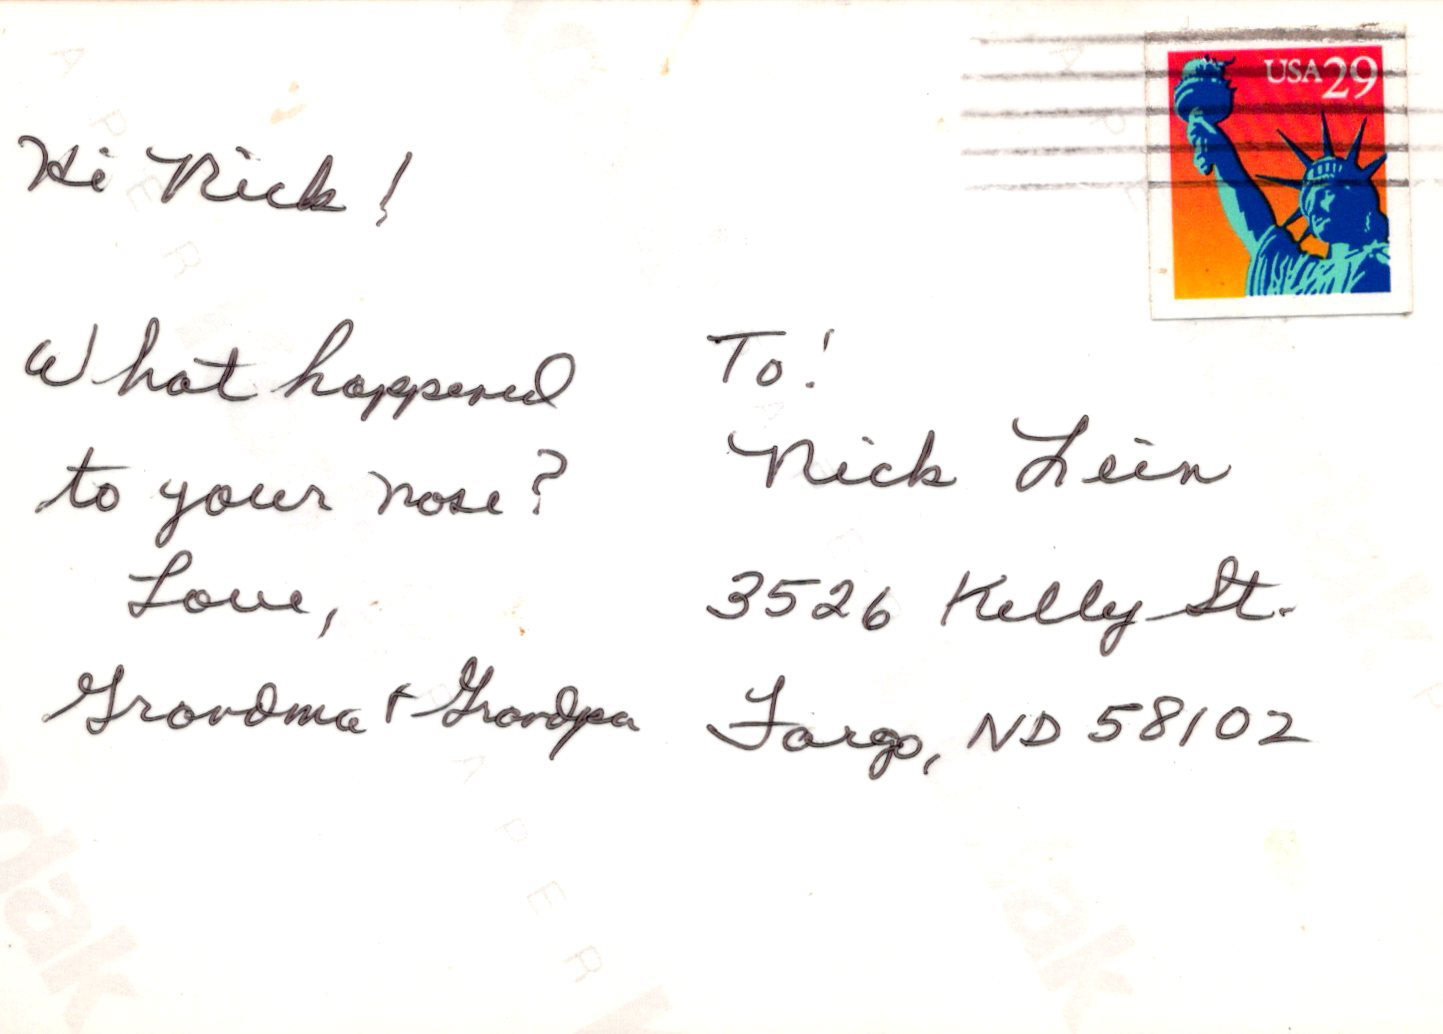 USA 29
Hi Nick!
What happened
to your nose?
Love,
Grandma + Grandpa
To:
Nick Lein
3526 Kelly St.
Fargo, ND 58102